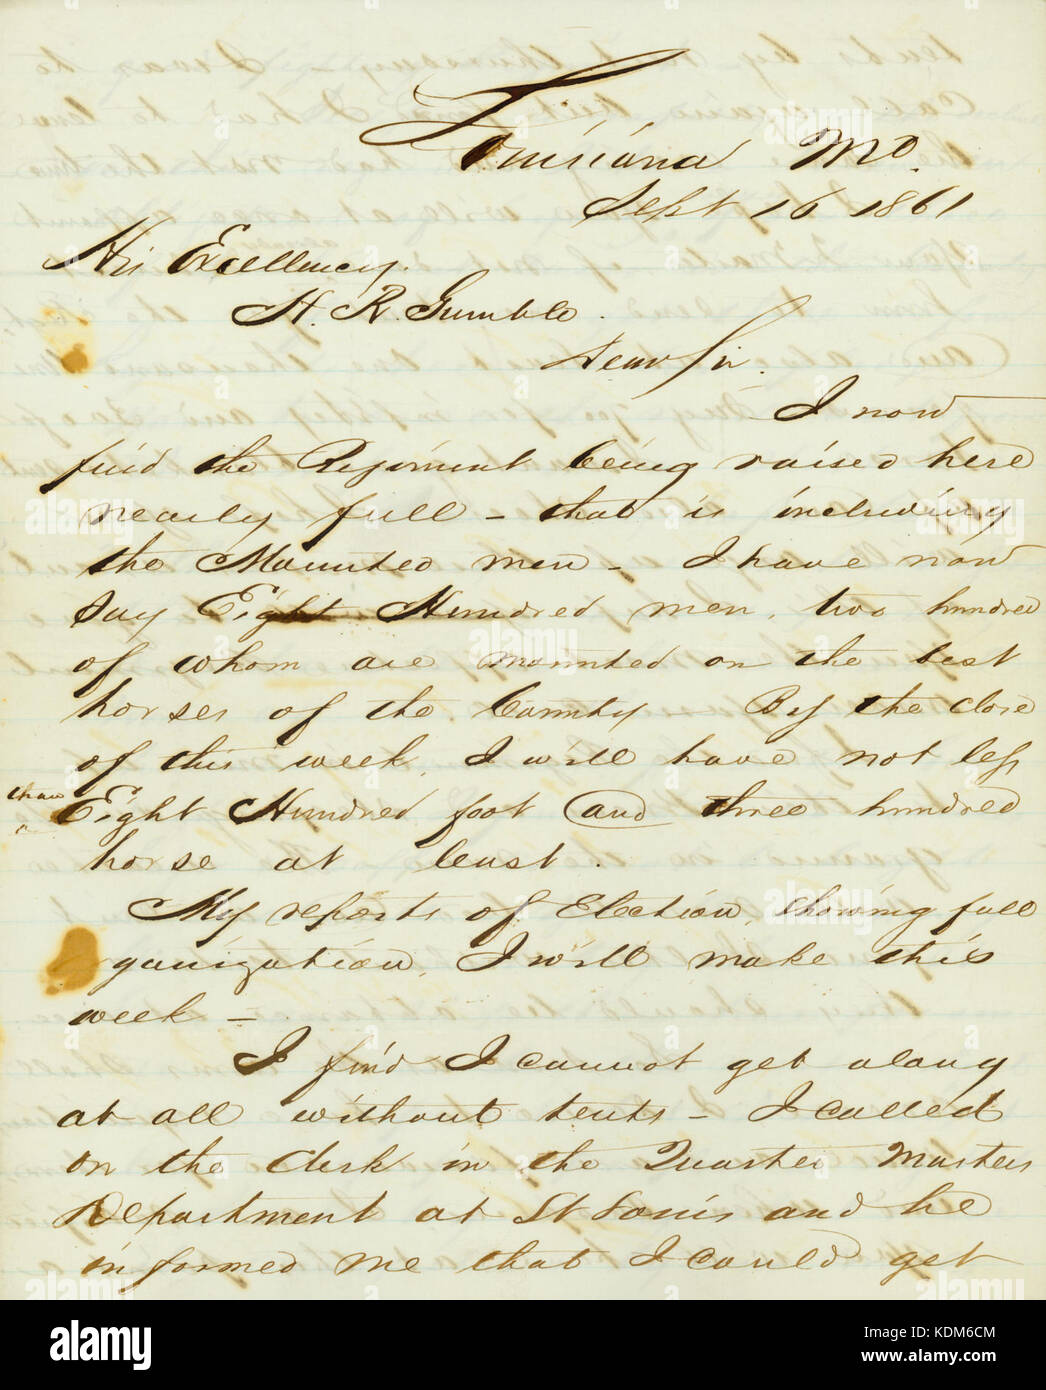 Louisiana Mo.
Sept 16 1861
His Excellency.
H. R. Gumble.
Dear Sir.
I now
find the Regiment being raised here
nearly full – that is including
the Mounted men – I have now
say Eight Hundred men, two hundred
of whom are mounted on the best
horses of the County – By the close
of this week, I will have not less
than
Eight Hundred foot and three hundred
horse at least.
My reports of Election, showing full
organization, I will make this
week –
I find I cannot get along
at all without tents – I called
on the Clerk in the Quarter Masters
Department at St Louis and he
informed me that I could get
alamy stock photo
KDM6CM
www.alamy.com